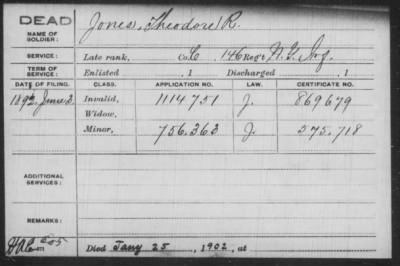 DEAD
NAME OF SOLDIER: Jones, Theodore R.
SERVICE: Late rank, Co. C, 146 Reg't N.Y. Inf.
TERM OF SERVICE: Enlisted , 1 Discharged , 1
DATE OF FILING. CLASS. APPLICATION NO. LAW. CERTIFICATE NO.
1892, June 3. Invalid, 1114751 J. 869679
Widow,
Minor, 756.363 J. 575.718
ADDITIONAL SERVICES:
REMARKS:
Died Jany 25, 1902, at